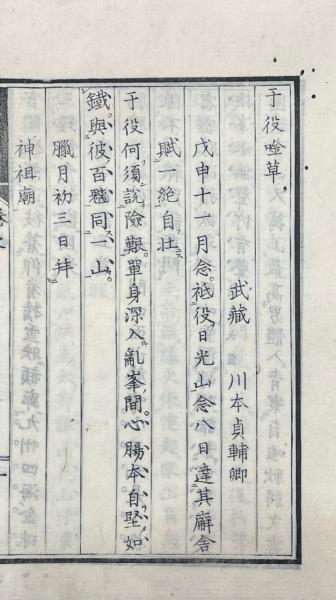 于役唫草
武藏 川本貞輔卿
戊申十一月念祗役日光山念八日達其廨舍
賦一絶自壯
于役何須說險艱。單身深入亂峯間。心腸本自堅如
鐵。與彼百同一山。
臘月初三日拜
神祖廟